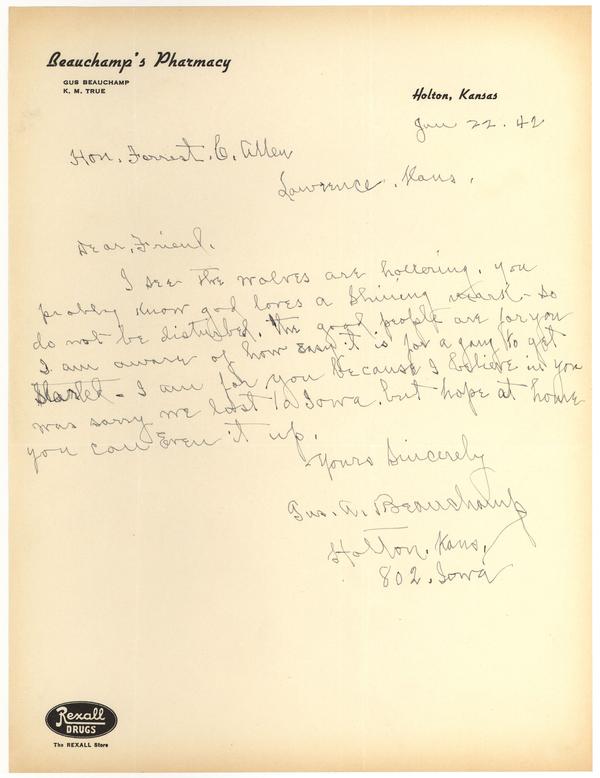 Beauchamp's Pharmacy
GUS BEAUCHAMP
K. M. TRUE
Holton, Kansas
Jan 22. 42
Hon. Forrest. C. Allen
Lawrence. Kans.
Dear, Friend.
I see the wolves are hollering. you
probly know god loves a Shining mark - so
do not be disturbed. the good people are for you
I am aware of how easy it is for a gang to get
Started - I am for you because I believe in you
was sorry we lost to Iowa. but hope at home
you can Even it up.
Yours Sincerely
Gus. A. Beauchamp
Holton. Kans,
802. Iowa
Rexall
DRUGS
The REXALL Store